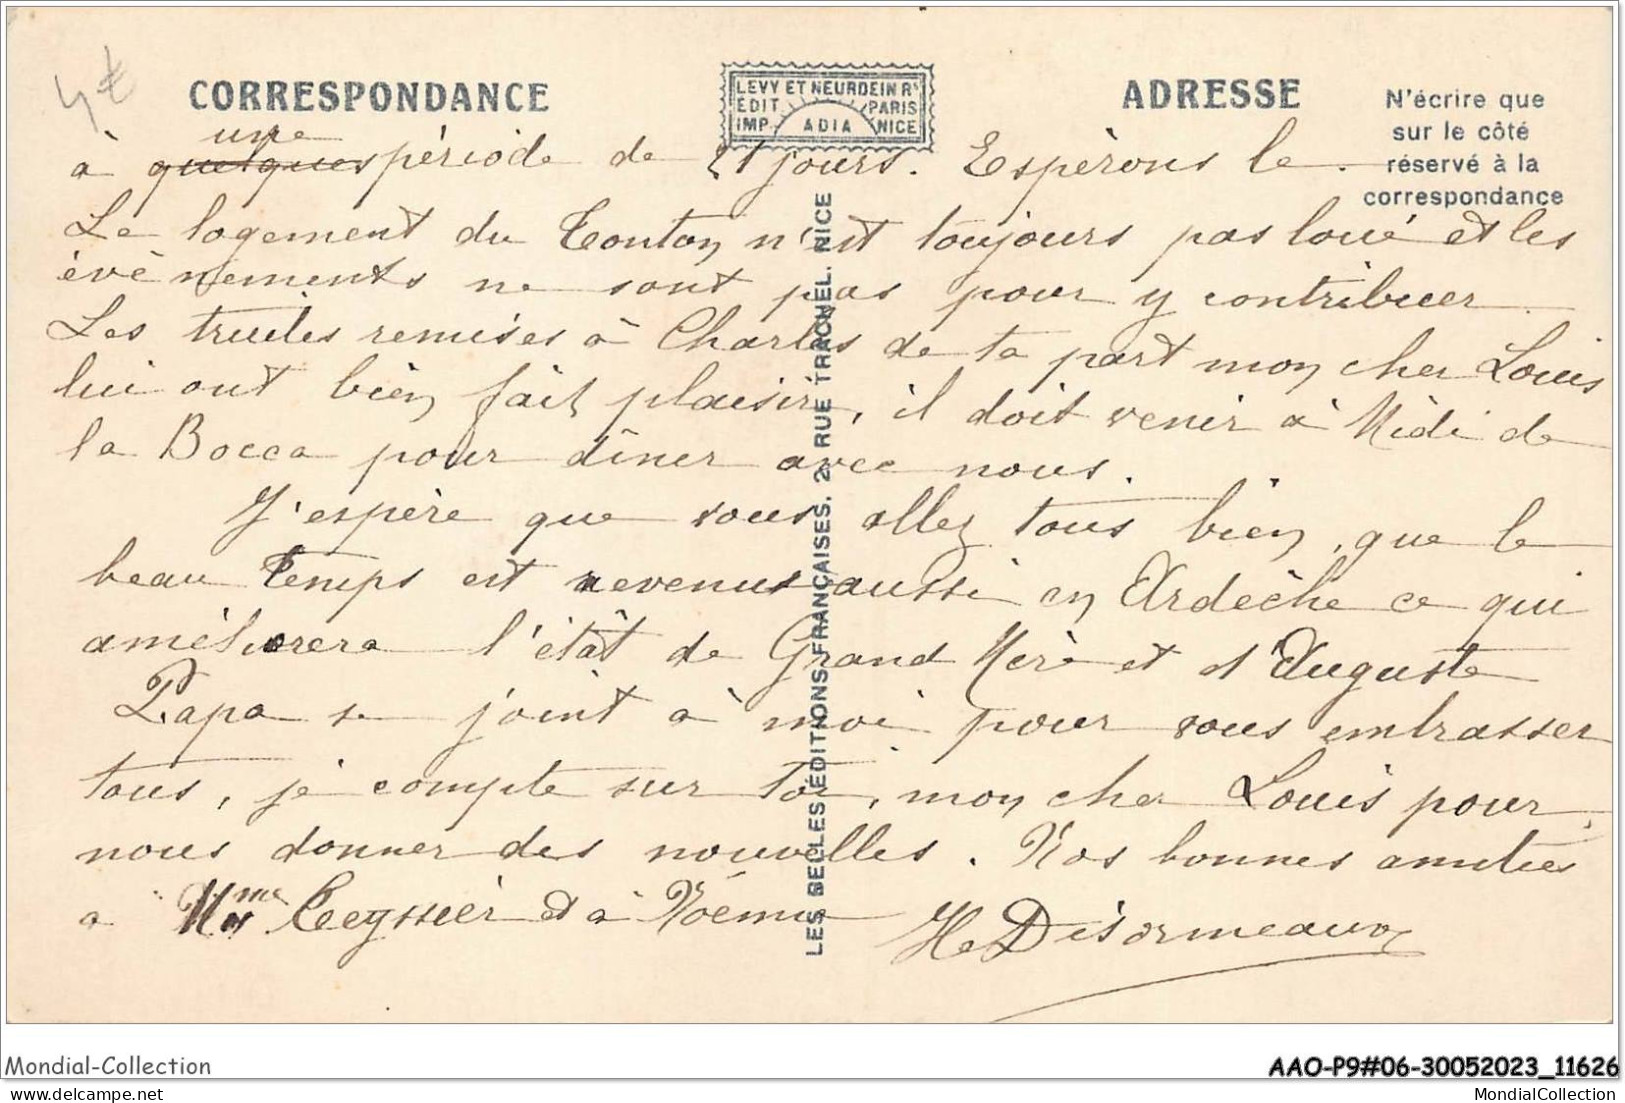 4€
CORRESPONDANCE
LEVY ET NEURDEIN Rs
EDIT. PARIS
IMP. ADIA NICE
ADRESSE
N'écrire que
sur le côté
réservé à la
correspondance
une
à quelques période de 21 jours. Espèrons le.
Le logement du Tonton n'est toujours pas loué et les
évènements ne sont pas pour y contribuer.
Les truites remises à Charles de ta part mon cher Louis
lui ont bien fait plaisir, il doit venir à Midi de
la Bocca pour dîner avec nous.
J'espère que vous allez tous bien, que le
beau Temps est revenu aussi en Ardèche ce qui
améliorera l'étât de Grand Mère et d'Auguste
Papa se joint à moi pour vous embrasser
tous, je compte sur toi, mon cher Louis pour
nous donner des nouvelles. Nos bonnes amitiés
à Mme Teyssier et à Noémie
He Désormeaux
LES BELLES ÉDITIONS FRANÇAISES. 2, RUE TRACHEL. NICE
Mondial-Collection
AAO-P9#06-30052023_11626
MondialCollection
MondialCollection